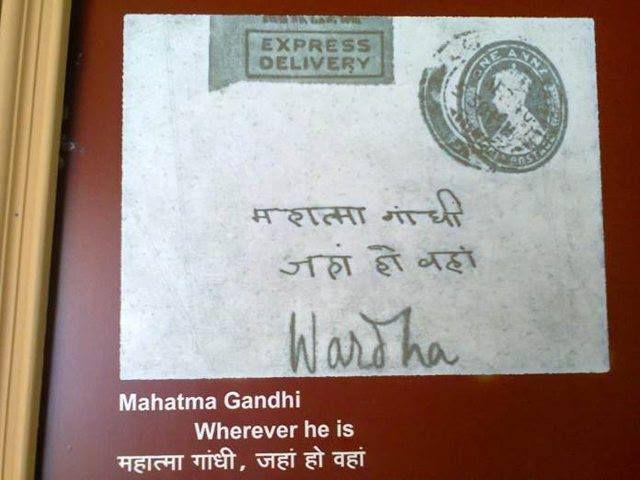 EXPRESS
DELIVERY
ONE ANNA
महात्मा गांधी
जहां हो वहां
Wardha
Mahatma Gandhi
Wherever he is
महात्मा गांधी, जहां हो वहां